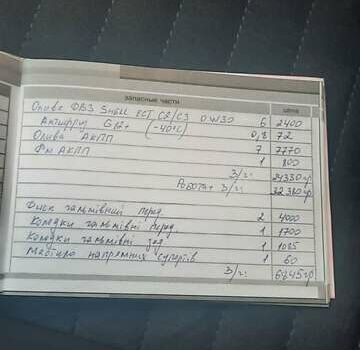 запасные части цена
Олива ДВЗ SHELL ECT C2/C3 0W30 6 2400
Антифриз G12+ (-40°C) 0,8 72
Олива АКПП 7 7770
Ф-н АКПП 1 800
З/ч: 24330 гр
Робота+ З/ч: 32380 гр
Диск гальмівний перед. 2 4000
Колодки гальмівні перед 1 1700
Колодки гальмівні зад 1 1085
Мастило напрямних супортів 1 60
З/ч: 6845 гр